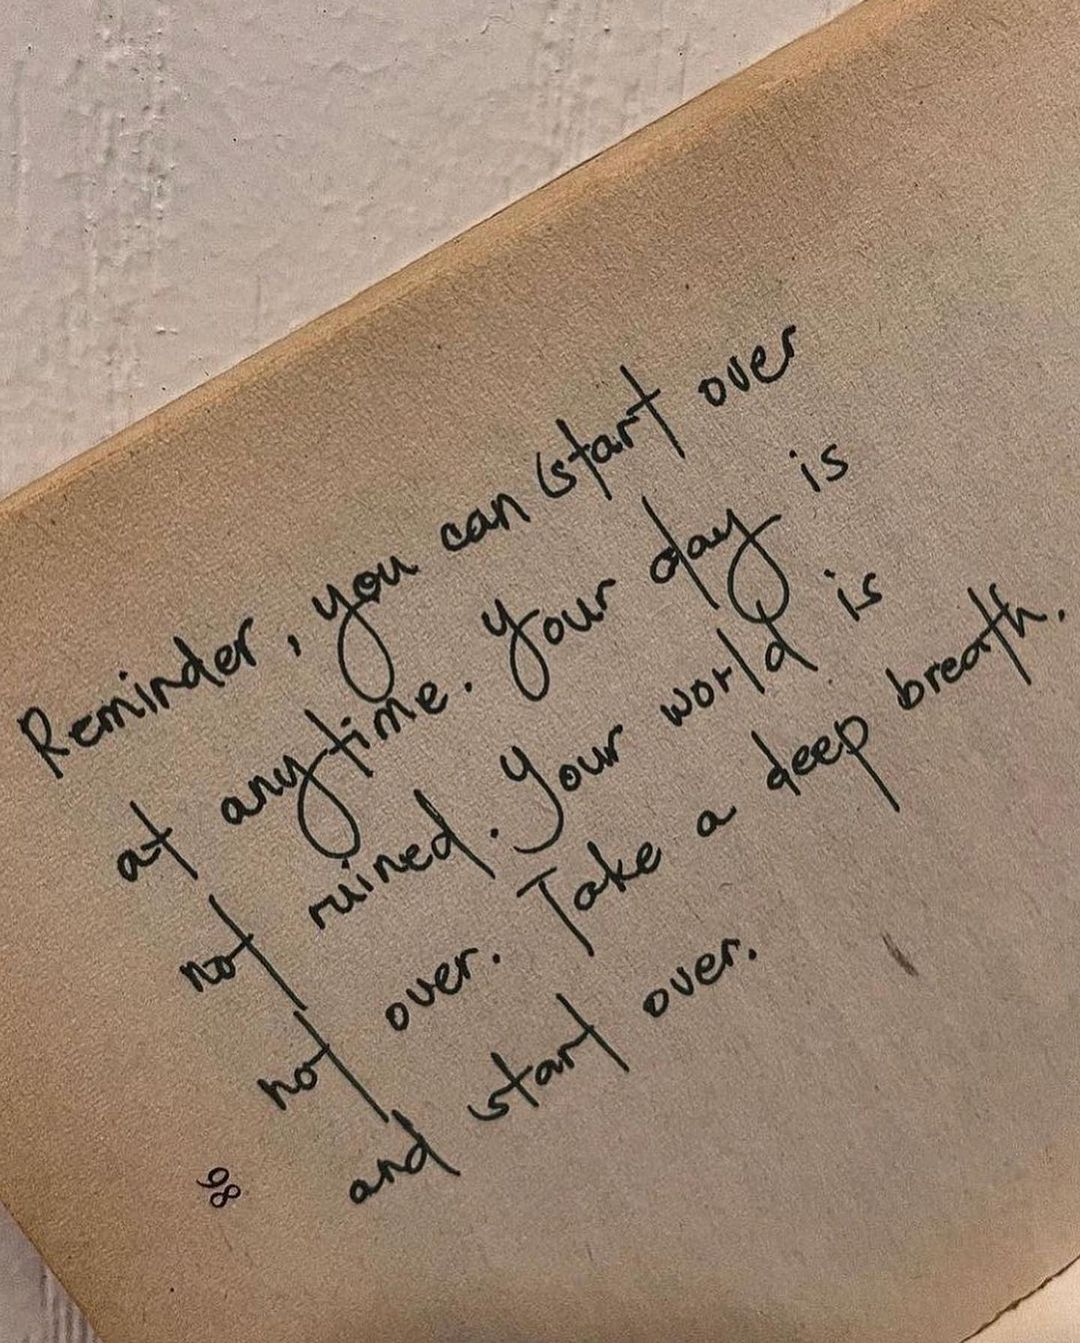 Reminder, you can start over
at anytime. Your day is
not ruined. Your world is
not over. Take a deep breath.
and start over.